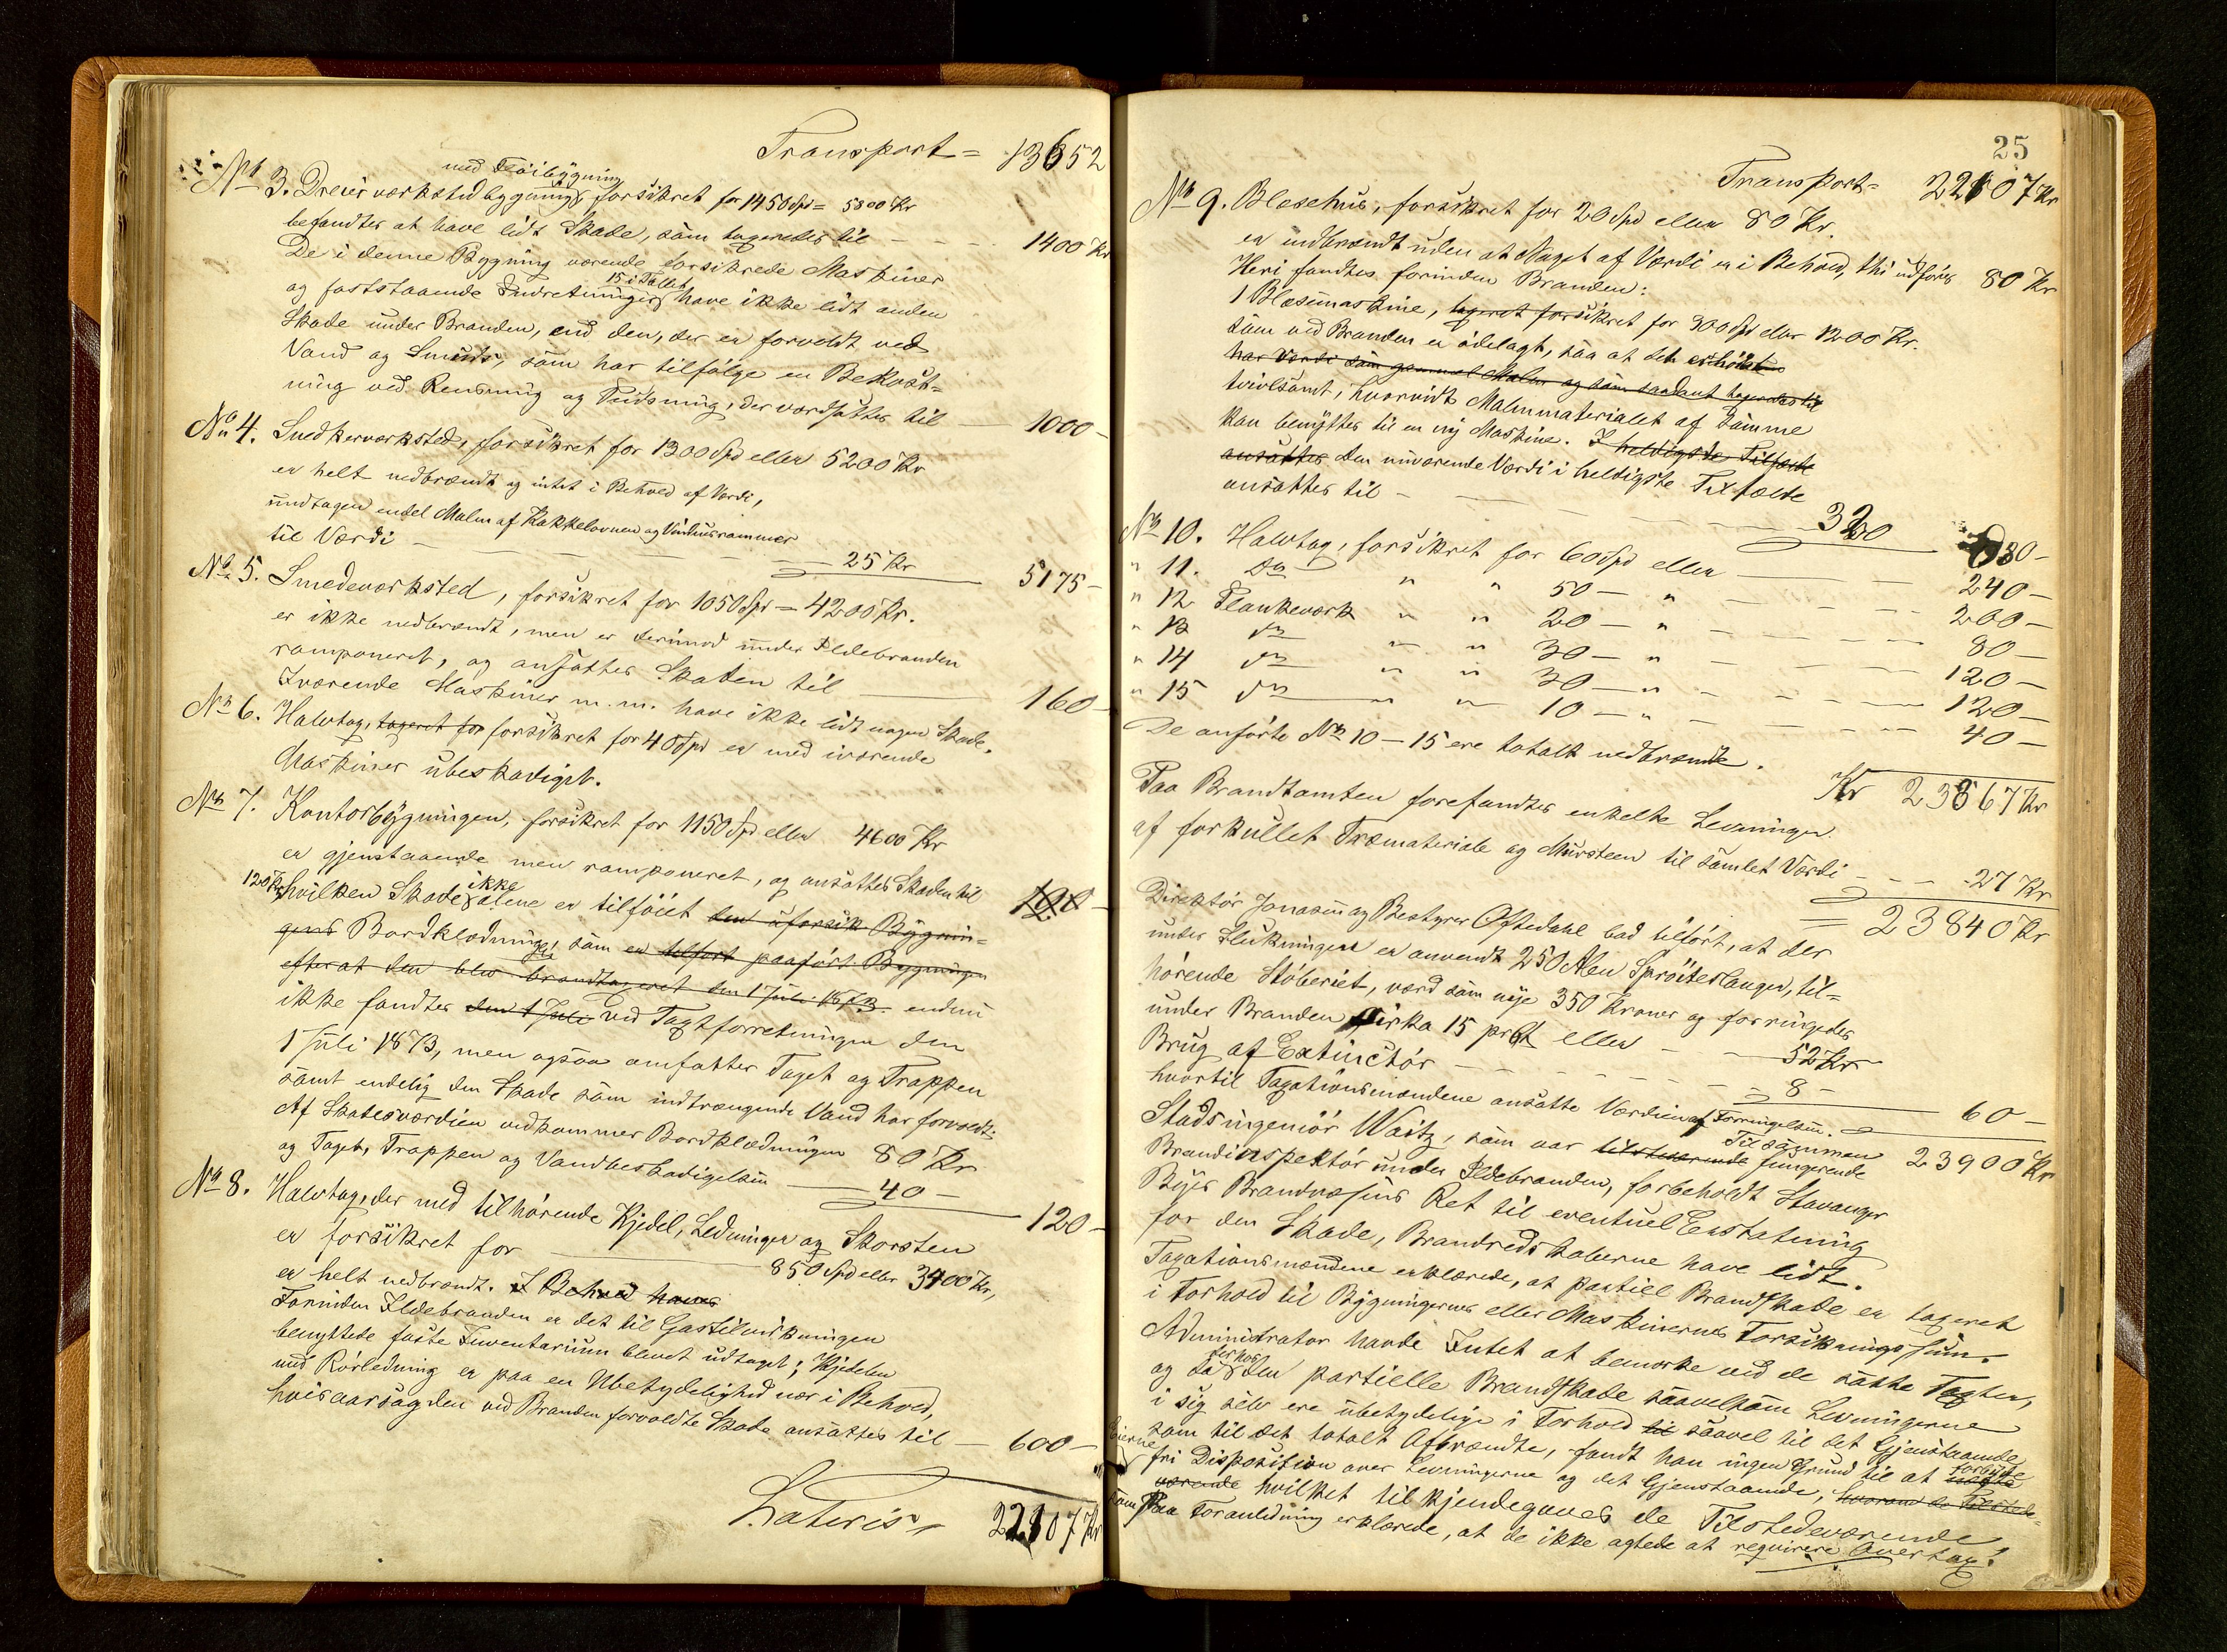 Transport = 13652
med Tøibygning
No 3. Dreierværkstedbygning, forsikret for 1450 Spd = 5800 Kr
befandtes at have lidt Skade, som taxeredes til - - - 1400 Kr
De i denne Bygning værende forsikrede Maskiner
15 i Tallet
og faststaaende Indretninger have ikke lidt anden
Skade under Branden, end den, der er forvoldt ved
Vand og Smuds, som har tilfølge en Bekost=
ning ved Rensning og Pudsning, der værdsættes til 1000 -
No 4. Snedkerværksted, forsikret for 1300 Spd eller 5200 Kr
er helt nedbrændt og intet i Behold af Værdi,
undtagen endel Malm af Kakkelovnen og Vinduesrammer
til Værdi - - - 25 Kr 5175 -
No 5. Smedeværksted, forsikret for 1050 Spd = 4200 Kr.
er ikke nedbrændt, men er derimod under Ildebranden
ramponeret, og ansættes Skaden til 160 -
Iværende Maskiner m.m. have ikke lidt nogen Skade.
No 6. Halvtag, taxeret for forsikret for 40 Spd er med iværende
Maskiner ubeskadiget.
No 7. Kontorbygningen, forsikret for 1150 Spd eller 4600 Kr
er gjenstaaende men ramponeret, og ansættes Skaden til
120 Kr hvilken Skade ikke alene er tilføiet den uforsik Bygnin=
gens Bordklædning, som er tilført paaført Bygningen
efterat den blev brandtaxeret den 1 Juli 1873 endnu
ikke fandtes den 1 Juli ved Taxtforretningen den
1 Juli 1873, men ogsaa omfatter Taget og Trappen
samt endelig den Skade som indtrængende Vand har forvoldt.
Af Skadesværdien vedkommer Bordklædningen 80 Kr
og Taget, Trappen og Vandbeskadigelsen 40 - 120 -
No 8. Halvtag, der med tilhørende Kjedel, Ledninger og Skorsten
er forsikret for 850 Spd eller 3400 Kr,
er helt nedbrændt. I Behold haves
Forinden Ildebranden er det til Gastilvirkningen
benyttede faste Inventarium blevet udtaget; Kjedelen
med Rørledning er paa en Ubetydelighed nær i Behold,
hvisaarsag den ved Branden forvoldte Skade ansættes til - 600 -
Lateris = 22107 Kr
25
Transport = 22107 Kr
No 9. Blæsehus, forsikret for 20 Spd eller 80 Kr.
er nedbrændt uden at Noget af Værdi er i Behold, thi udføres 80 Kr
Heri fandtes forinden Branden:
1 Blæsemaskine, taxeret forsikret for 300 Spd eller 1200 Kr.
som ved Branden er ødelagt, saa at det
har Værdi som gammel Malm og som saadant taxeredes til
tvivlsomt, hvorvidt Malmmaterialet af samme
kan benyttes til en ny Maskine. I heldigste Tilfælde
ansættes den nuværende Værdi i heldigste Tilfælde
ansættes til - - - 320 880 -
No 10. Halvtag, forsikret for 60 Spd eller - - 240 -
" 11. do " " 50 - " - - 200 -
" 12 Plankeværk " " 20 - " - - 80 -
" 13 do " " 30 - " - - 120 -
" 14 do " " 30 - " - - 120 -
" 15 do " " 10 - " - - 40 -
De anførte No 10 - 15 ere totalt nedbrændte.
Kr 23867 Kr
Paa Brandtomten forefandtes enkelte Levninger
af forkullet Træmateriale og Mursteen til samlet Værdi - - - 27 Kr
= 23840 Kr
Direktør Jonassen og Bestyrer Oftedahl bad tilført, at der
under Slukningen er anvendt 250 Alen Sprøiteslanger, til=
hørende Støberiet, værd som nye 350 Kroner og forringedes
under Branden cirka 15 prCt eller - - 52 Kr
Brug af Extinctør - - - 8 -
hvortil Taxationsmændene ansatte Værdien af Forringelsen. 60 -
Tilsammen 23900 Kr
Stadsingeniør Waitz, som var tilstedeværende fungerende
Brandinspektør under Ildebranden, forbeholdt Stavanger
Byes Brandvæsens Ret til eventuel Erstatning
for den Skade, Brandredskaberne have lidt.
Taxationsmændene erklærede, at partiell Brandskade er taxeret
i Forhold til Bygningernes eller Maskinernes Forsikringssum.
Administrator havde Intet at bemærke ved de satte Taxter,
og da derhos den partielle Brandskade saavelsom Levningerne
i sig selv ere ubetydelige i Forhold til saavel til det Gjenstaaende
som til det totalt Afbrændte, fandt han ingen Grund til at negte forbyde
Eierne fri Disposition over Levningerne og det Gjenstaaende, hvoraf de Tilstede=
værende hvilket tilkjendegaves de Tilstedeværende,
som paa Foranledning erklærede, at de ikke agtede at requirere Overtax.